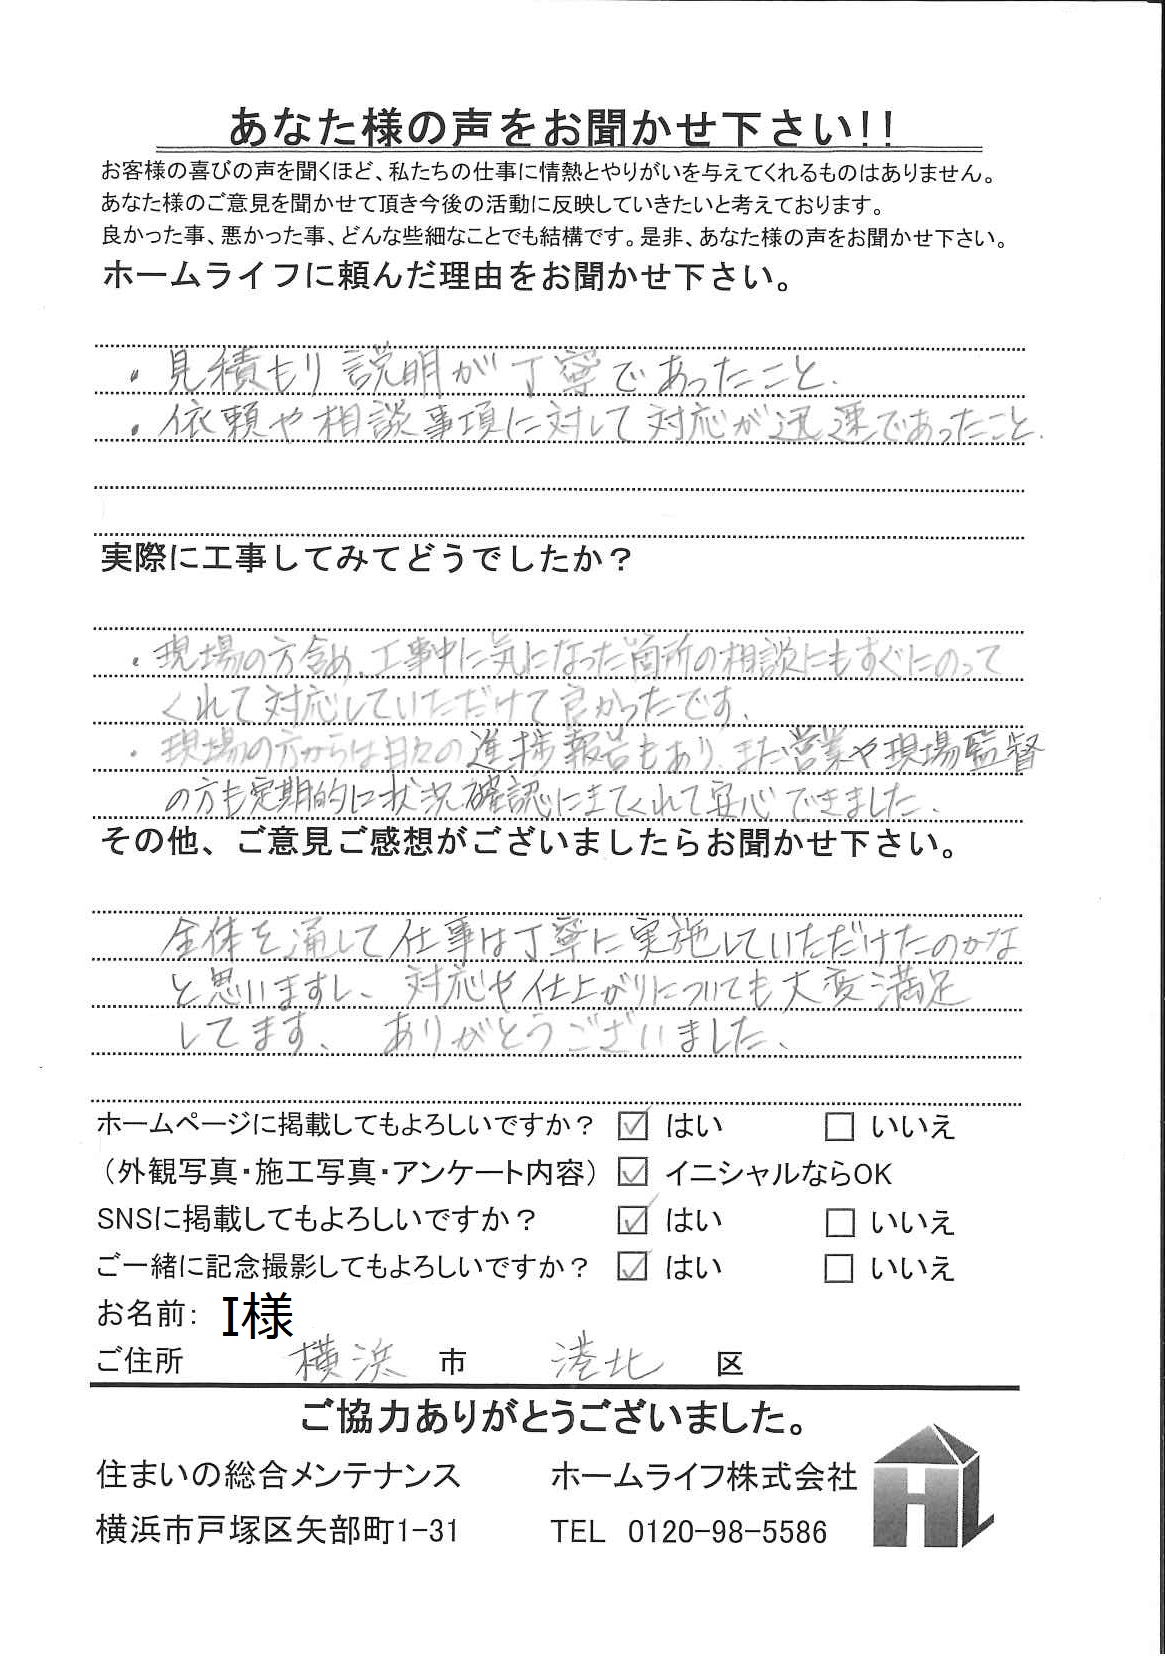 あなた様の声をお聞かせ下さい!!
お客様の喜びの声を聞くほど、私たちの仕事に情熱とやりがいを与えてくれるものはありません。
あなた様のご意見を聞かせて頂き今後の活動に反映していきたいと考えております。
良かった事、悪かった事、どんな些細なことでも結構です。是非、あなた様の声をお聞かせ下さい。
ホームライフに頼んだ理由をお聞かせ下さい。
・見積もり説明が丁寧であったこと.
・依頼や相談事項に対して対応が迅速であったこと.
実際に工事してみてどうでしたか？
・現場の方含め、工事中に気になった箇所の相談にもすぐにのって
くれて対応していただけて良かったです.
・現場の方からは日々の進捗報告もあり、また営業や現場監督
の方も定期的に状況確認にきてくれて安心できました.
その他、ご意見ご感想がございましたらお聞かせ下さい。
全体を通して仕事は丁寧に実施していただけたのかな
と思いますし、対応や仕上がりについても大変満足
してます、ありがとうございました、
ホームページに掲載してもよろしいですか？ ☑ はい □ いいえ
（外観写真・施工写真・アンケート内容） ☑ イニシャルならOK
SNSに掲載してもよろしいですか？ ☑ はい □ いいえ
ご一緒に記念撮影してもよろしいですか？ ☑ はい □ いいえ
お名前： I様
ご住所 横浜 市 港北 区
ご協力ありがとうございました。
住まいの総合メンテナンス ホームライフ株式会社
横浜市戸塚区矢部町1-31 TEL 0120-98-5586
HL